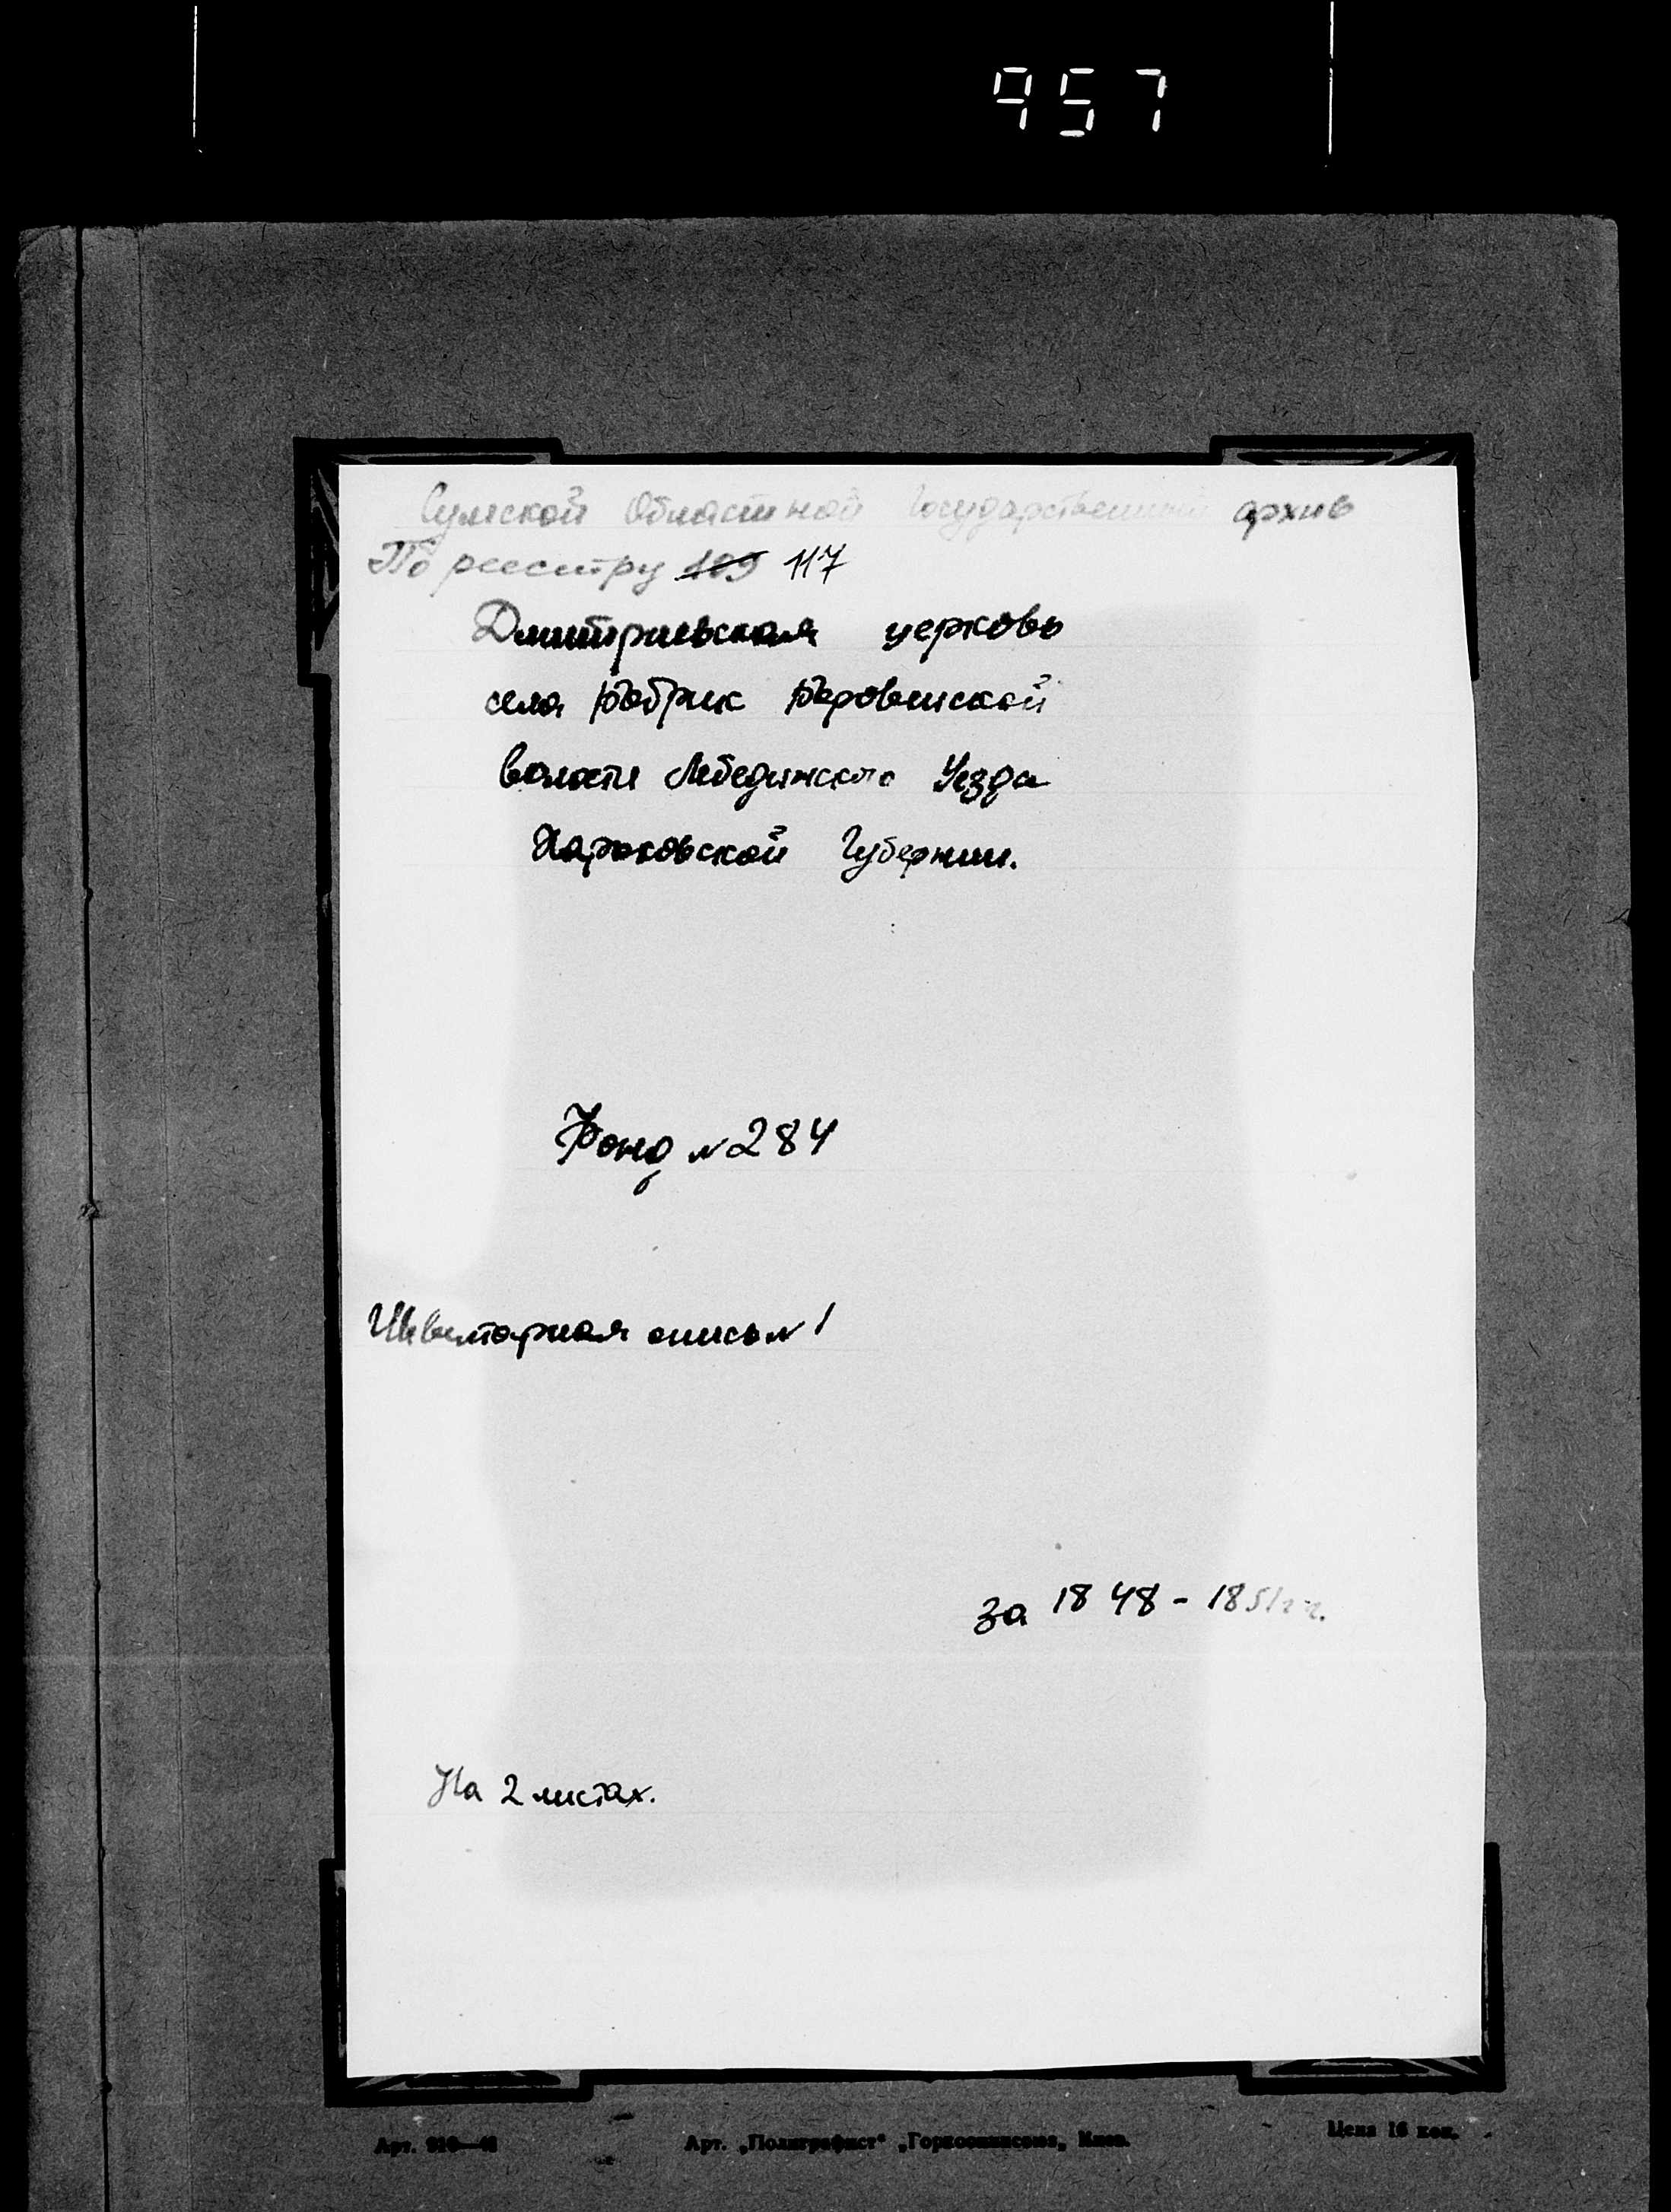 957
Сумской Областной Государственный архив
По реестру 109 117
Дмитриевская церковь
села Бобрик Боровенской
волости Лебединского Уезда
Харьковской Губернии.
Фонд №284
Инвентарная опись №1
за 1848-1851г г.
На 2 листах.
Арт. „Полиграфист“ Киев.
Цена 16 коп.